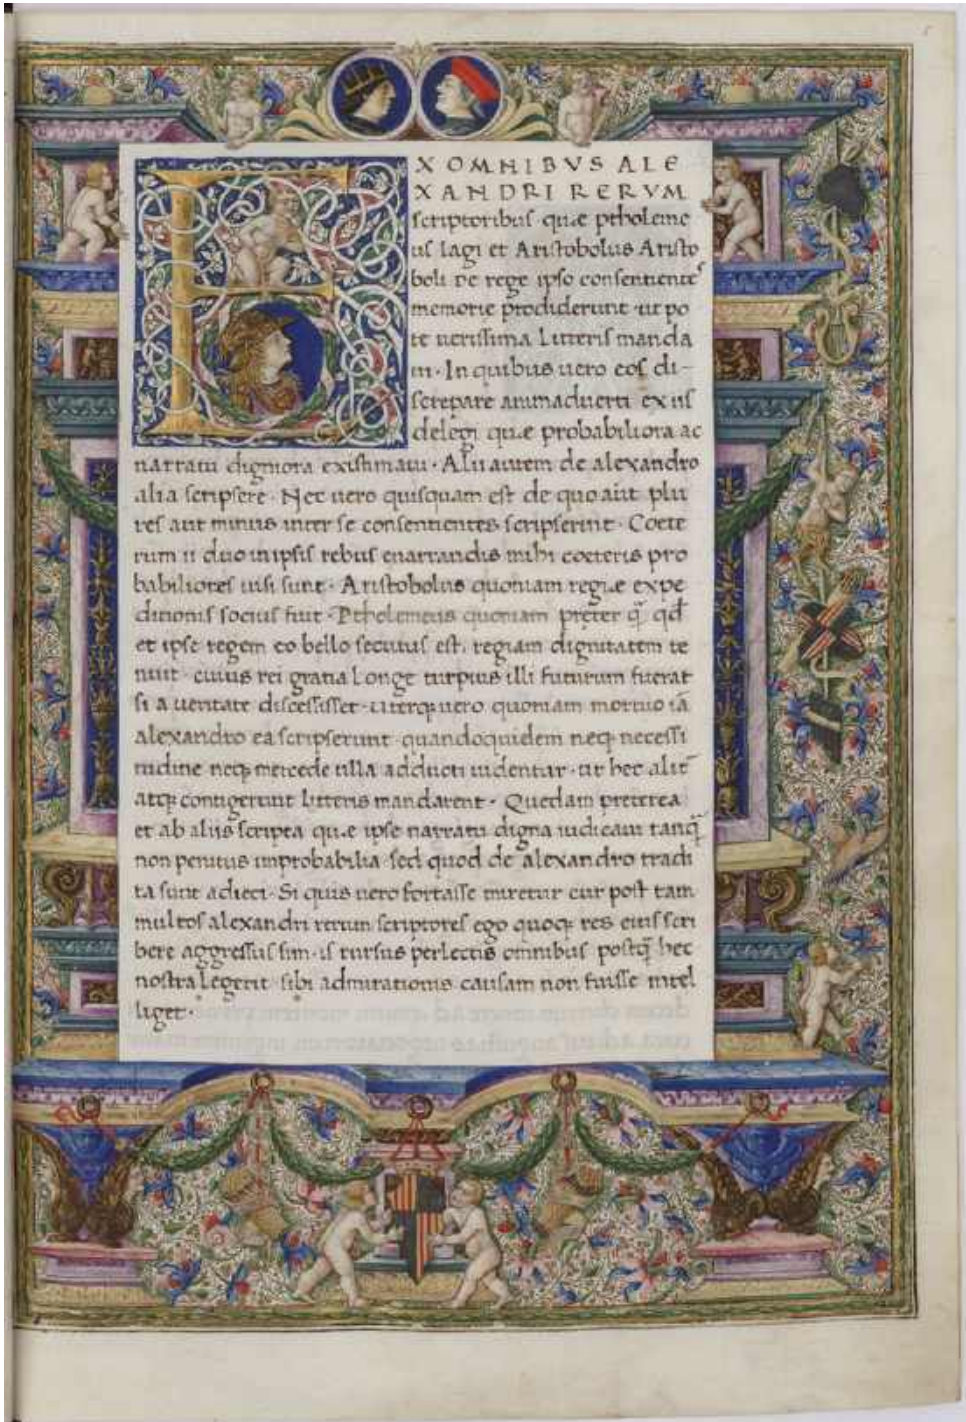 EX OMNIBVS ALE
XANDRI RERVM
scriptoribus quæ ptholeme
us lagi et Aristobolus Aristo
boli de rege ipso consentientes
memorie prodiderunt ut po
te uerissima litteris manda
ui. In quibus uero eos di-
screpare animaduerti ex iis
delegi quæ probabiliora ac
narratu digniora existimaui. Alii autem de alexandro
alia scripsere. Nec uero quisquam est de quo aut plu
res aut minus inter se consentientes scripserint. Coete
rum ii duo in ipsis rebus enarrandis mihi coeteris pro
babiliores uisi sunt. Aristobolus quoniam regiæ expe
ditionis socius fuit. Ptholemeus quoniam preter q̄ qd̄
et ipse regem eo bello secutus est, regiam dignitatem te
nuit. cuius rei gratia longe turpius illi futurum fuerat
si a ueritate discessisset. uterq; uero quoniam mortuo iā
alexandro ea scripserunt quandoquidem neq; necessi
tudine neq; mercede ulla adducti uidentur. ut hec alit̄
atq; contigerunt litteris mandarent. Quedam preterea
et ab aliis scripta quæ ipse narratu digna iudicaui tanq̄
non penitus improbabilia sed quod de alexandro tradi
ta sunt adieci. Si quis uero fortasse miretur cur post tam
multos alexandri rerum scriptores ego quoq; res eius scri
bere aggressus sim. is rursus perlectis omnibus postq̄ hec
nostra legerit sibi admirationis causam non fuisse intel
liget.